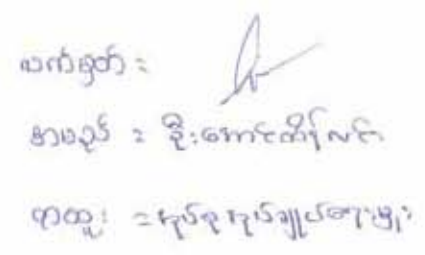 လက်မှတ် :
နာမည် : ဦးအောင်ကိန်လင်း
ရာထူး : အုပ်စု အုပ်ချုပ်ရေးမှူး